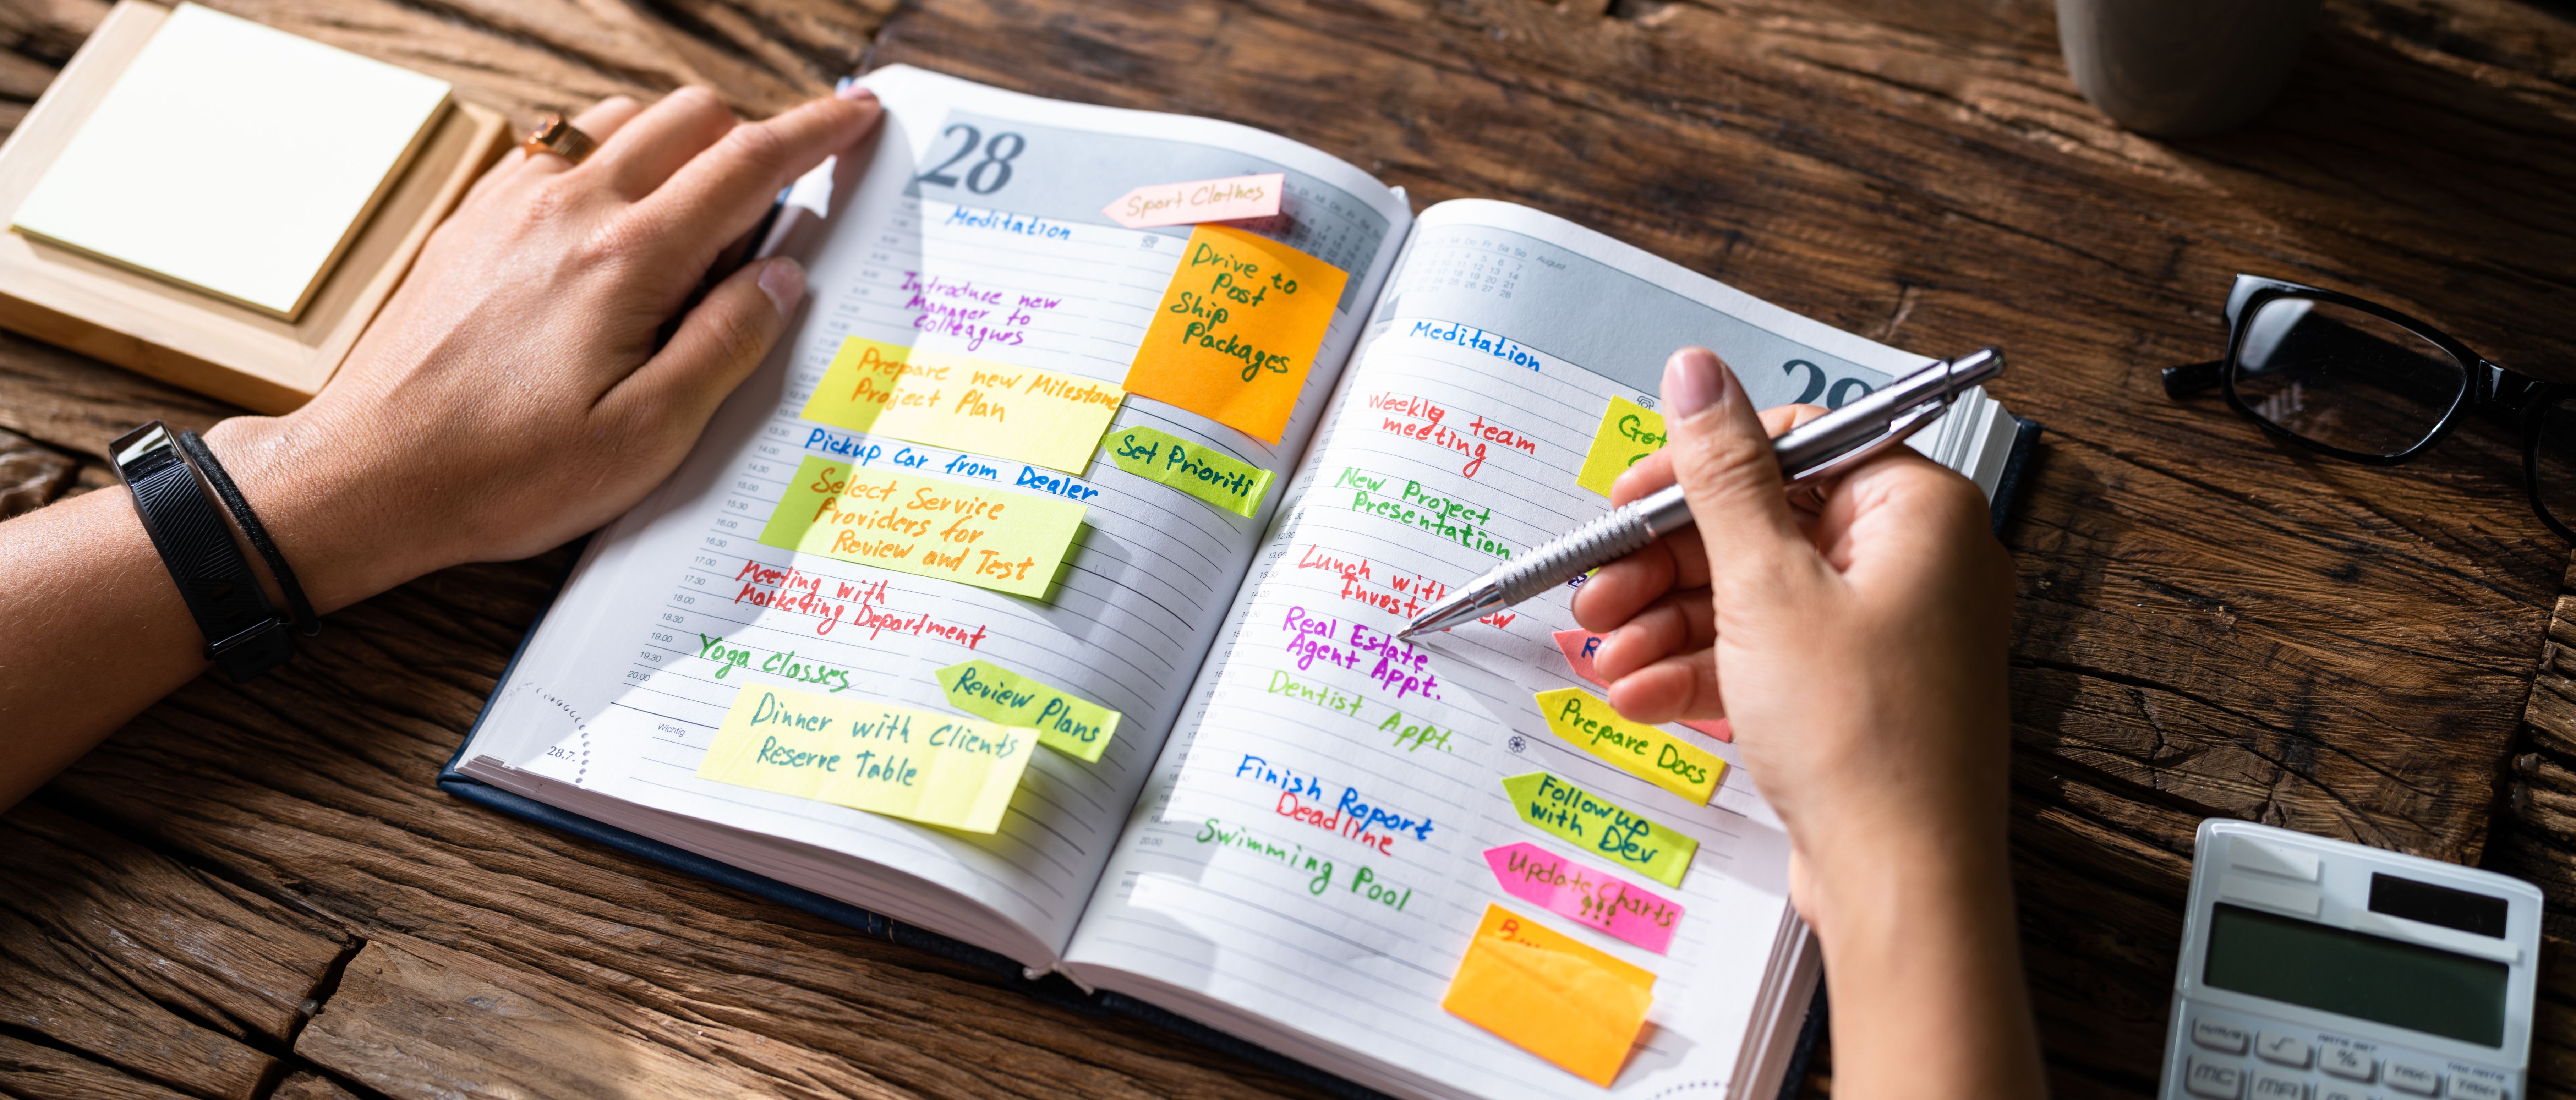 28
Sport Clothes
Meditation
Drive to
Post
Ship
Packages
Introduce new
Manager to
Colleagues
Prepare new Milestone
Project Plan
Set Prioriti
Pickup Car from Dealer
Select Service
Providers for
Review and Test
Meeting with
Marketing Department
Yoga Classes
Review Plans
Dinner with Clients
Reserve Table
13.30
14.00
14.30
15.00
15.30
16.00
16.30
17.00
17.30
18.00
18.30
19.00
19.30
20.00
Wichtig
28.7.
August
29
Meditation
Weekly team
meeting
Get
New Project
Presentation
Lunch with
Real Estate
Agent Appt.
Dentist Appt.
Prepare Docs
Finish Report
Deadline
Follow up
with Dev
Swimming Pool
Update Charts
!!!
20.00
MC